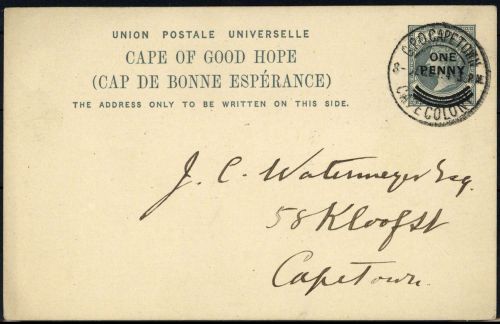 UNION POSTALE UNIVERSELLE
CAPE OF GOOD HOPE
(CAP DE BONNE ESPÉRANCE)
THE ADDRESS ONLY TO BE WRITTEN ON THIS SIDE.
G.P.O. CAPETOWN
ONE
PENNY
CAPE COLONY
J. C. Watermeyer Esq.
58 Kloof St
Capetown.